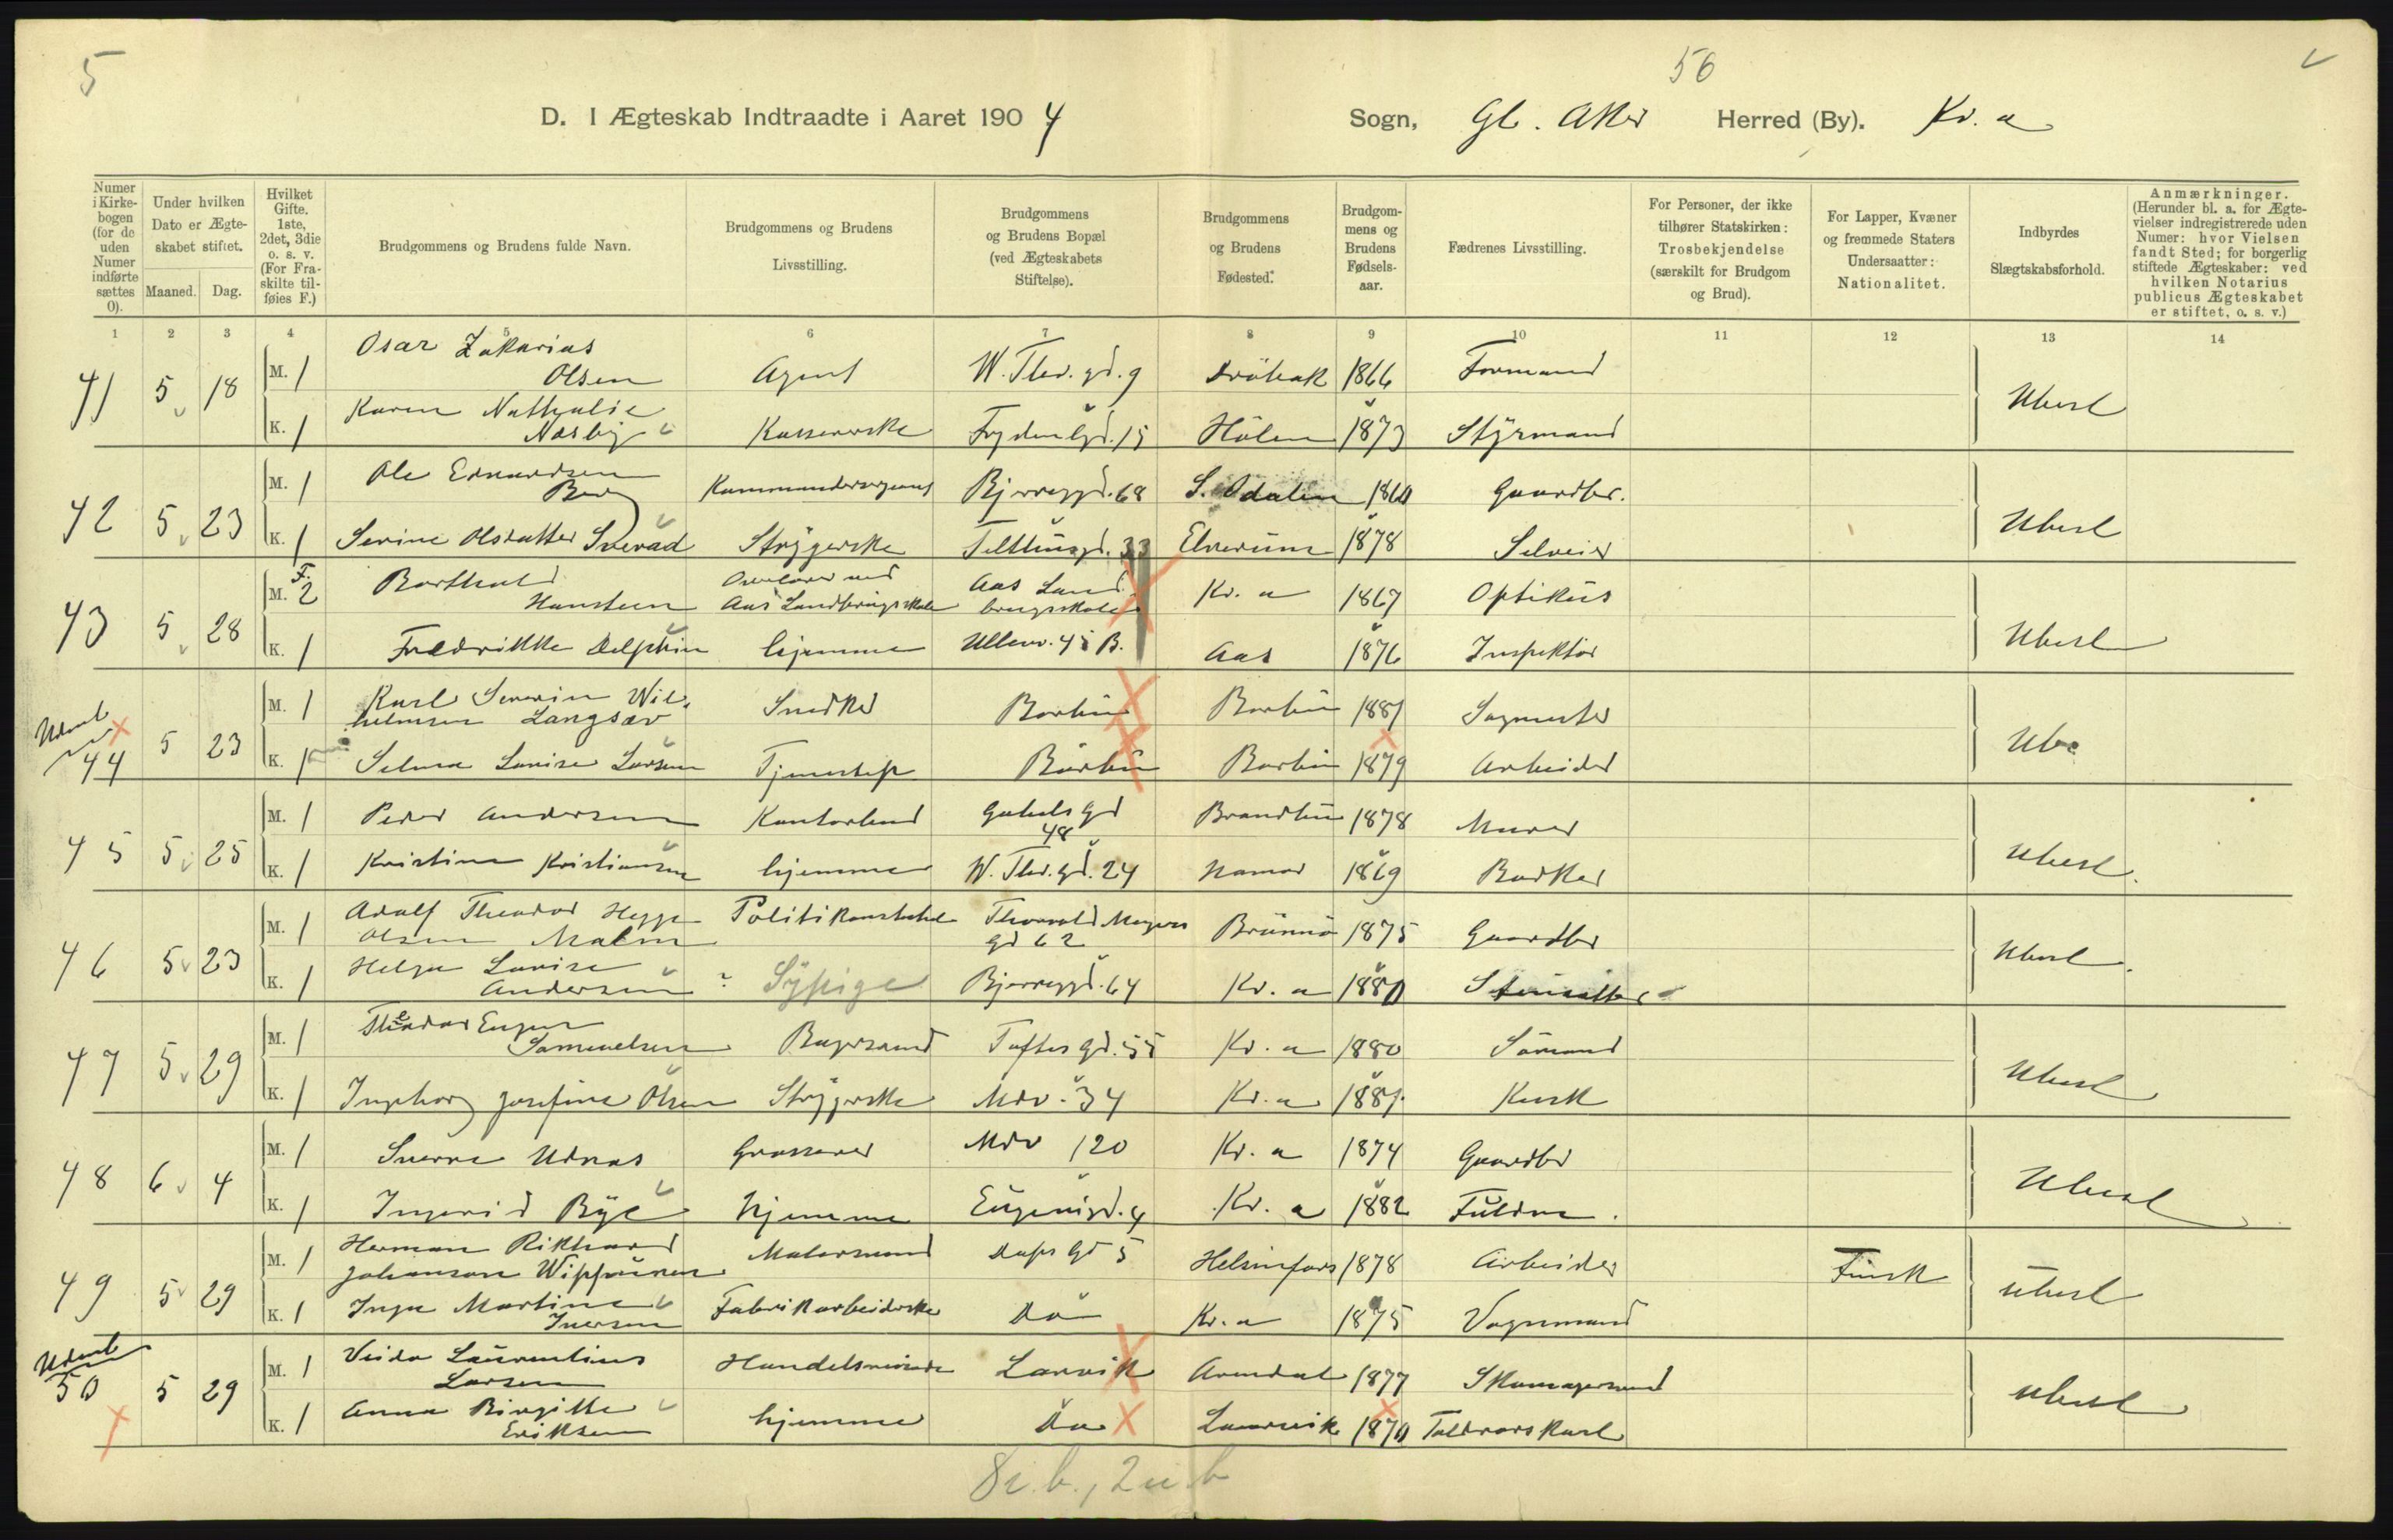 5
56
D. I Ægteskab Indtraadte i Aaret 1904
Sogn, Gl. Aker Herred (By). Kr. a
Numer i Kirkebogen (for de uden Numer indførte sættes 0).
Under hvilken Dato er Ægteskabet stiftet.
Maaned. Dag.
Hvilket Gifte. 1ste, 2det, 3die o. s. v. (For Fraskilte tilføies F.)
Brudgommens og Brudens fulde Navn.
Brudgommens og Brudens Livsstilling.
Brudgommens og Brudens Bopæl (ved Ægteskabets Stiftelse).
Brudgommens og Brudens Fødested.
Brudgommens og Brudens Fødselsaar.
Fædrenes Livsstilling.
For Personer, der ikke tilhører Statskirken: Trosbekjendelse (særskilt for Brudgom og Brud).
For Lapper, Kvæner og fremmede Staters Undersaatter: Nationalitet.
Indbyrdes Slægtskabsforhold.
Anmærkninger. (Herunder bl. a. for Ægtevielser indregistrerede uden Numer: hvor Vielsen fandt Sted; for borgerlig stiftede Ægteskaber: ved hvilken Notarius publicus Ægteskabet er stiftet, o. s. v.)
1 2 3 4 5 6 7 8 9 10 11 12 13 14
41 5 18 M. 1 Osar Zakarias Olsen Agent W. Thr. gd. 9 Dröbak 1866 Formand Ubesl
K. 1 Karen Nathalie Næsby Kassererske Frydenlgd. 15 Hölen 1873 Styrmand
42 5 23 M. 1 Ole Edvardsen Berg Kommandersergeant Bjerregd. 68 S. Odalen 1860 Gaardbr. Ubesl
K. 1 Serine Olsdatter Sveråd Strygerske Telthusgd. 33 Elverum 1878 Selveier
43 5 28 M. F. 2 Barthold Hansteen Overlærer ved Aas Landbrugsskole Aas Landbrugsskole Kr. a 1867 Optikus Ubesl
K. 1 Fredrikke Delphin hjemme Ullev. 45 B. Aas 1876 Inspektör
Udenb
44 5 23 M. 1 Karl Severin Wilhelmsen Langsæv Snedker Borbu Borbu 1881 Sagmester Ube
K. 1 Selma Lovise Larsen Tjenestep Barbu Barbu 1879 Arbeider
45 5 25 M. 1 Peder Andersen Kontorbud Gabels gd 48 Brandbu 1878 Murer Ubesl.
K. 1 Kristine Kristiansen hjemme W. Thr. gd. 24 Hamar 1869 Bødker
46 5 23 M. 1 Adolf Theodor Hegge Olsen Malm Politikonstabel Thorvald Meyers gd 62 Brünnö 1875 Gaardbr Ubesl.
K. 1 Helga Lovise Andersen ? Sypige Bjerregd. 64 Kr. a 1880
47 5 29 M. 1 Theodor Eugen Samuelsen Bagersvend Toftes gd. 55 Kr. a 1880 Sömand Ubesl
K. 1 Ingeborg Josefine Olsen Strygerske Mdv. 34 Kr. a 1881 Kusk
48 6 4 M. 1 Sverre Udnæs Grosserer Mdv 120 Kr. a 1874 Gaardbr Ubesl
K. 1 Ingerid Bye hjemme Eugenigd. 4 Kr. a 1882 Fuldm.
49 5 29 M. 1 Herman Rikhard Johanson Wippunen Malersvend Daps gd 5 Helsinfors 1878 Arbeider Finsk Ubesl
K. 1 Inga Martine Iversen Fabrikarbeiderske Do Kr. a 1875 Vognmand
Udenb
50 5 29 M. 1 Laurentius Larsen Handelsreisende Larvik Arendal 1877 Skomagersvend Ubesl
K. 1 Anna Birgitte Eriksen hjemme Do Laurvik 1870 Toldrorskarl
8 i. b., 2 u b